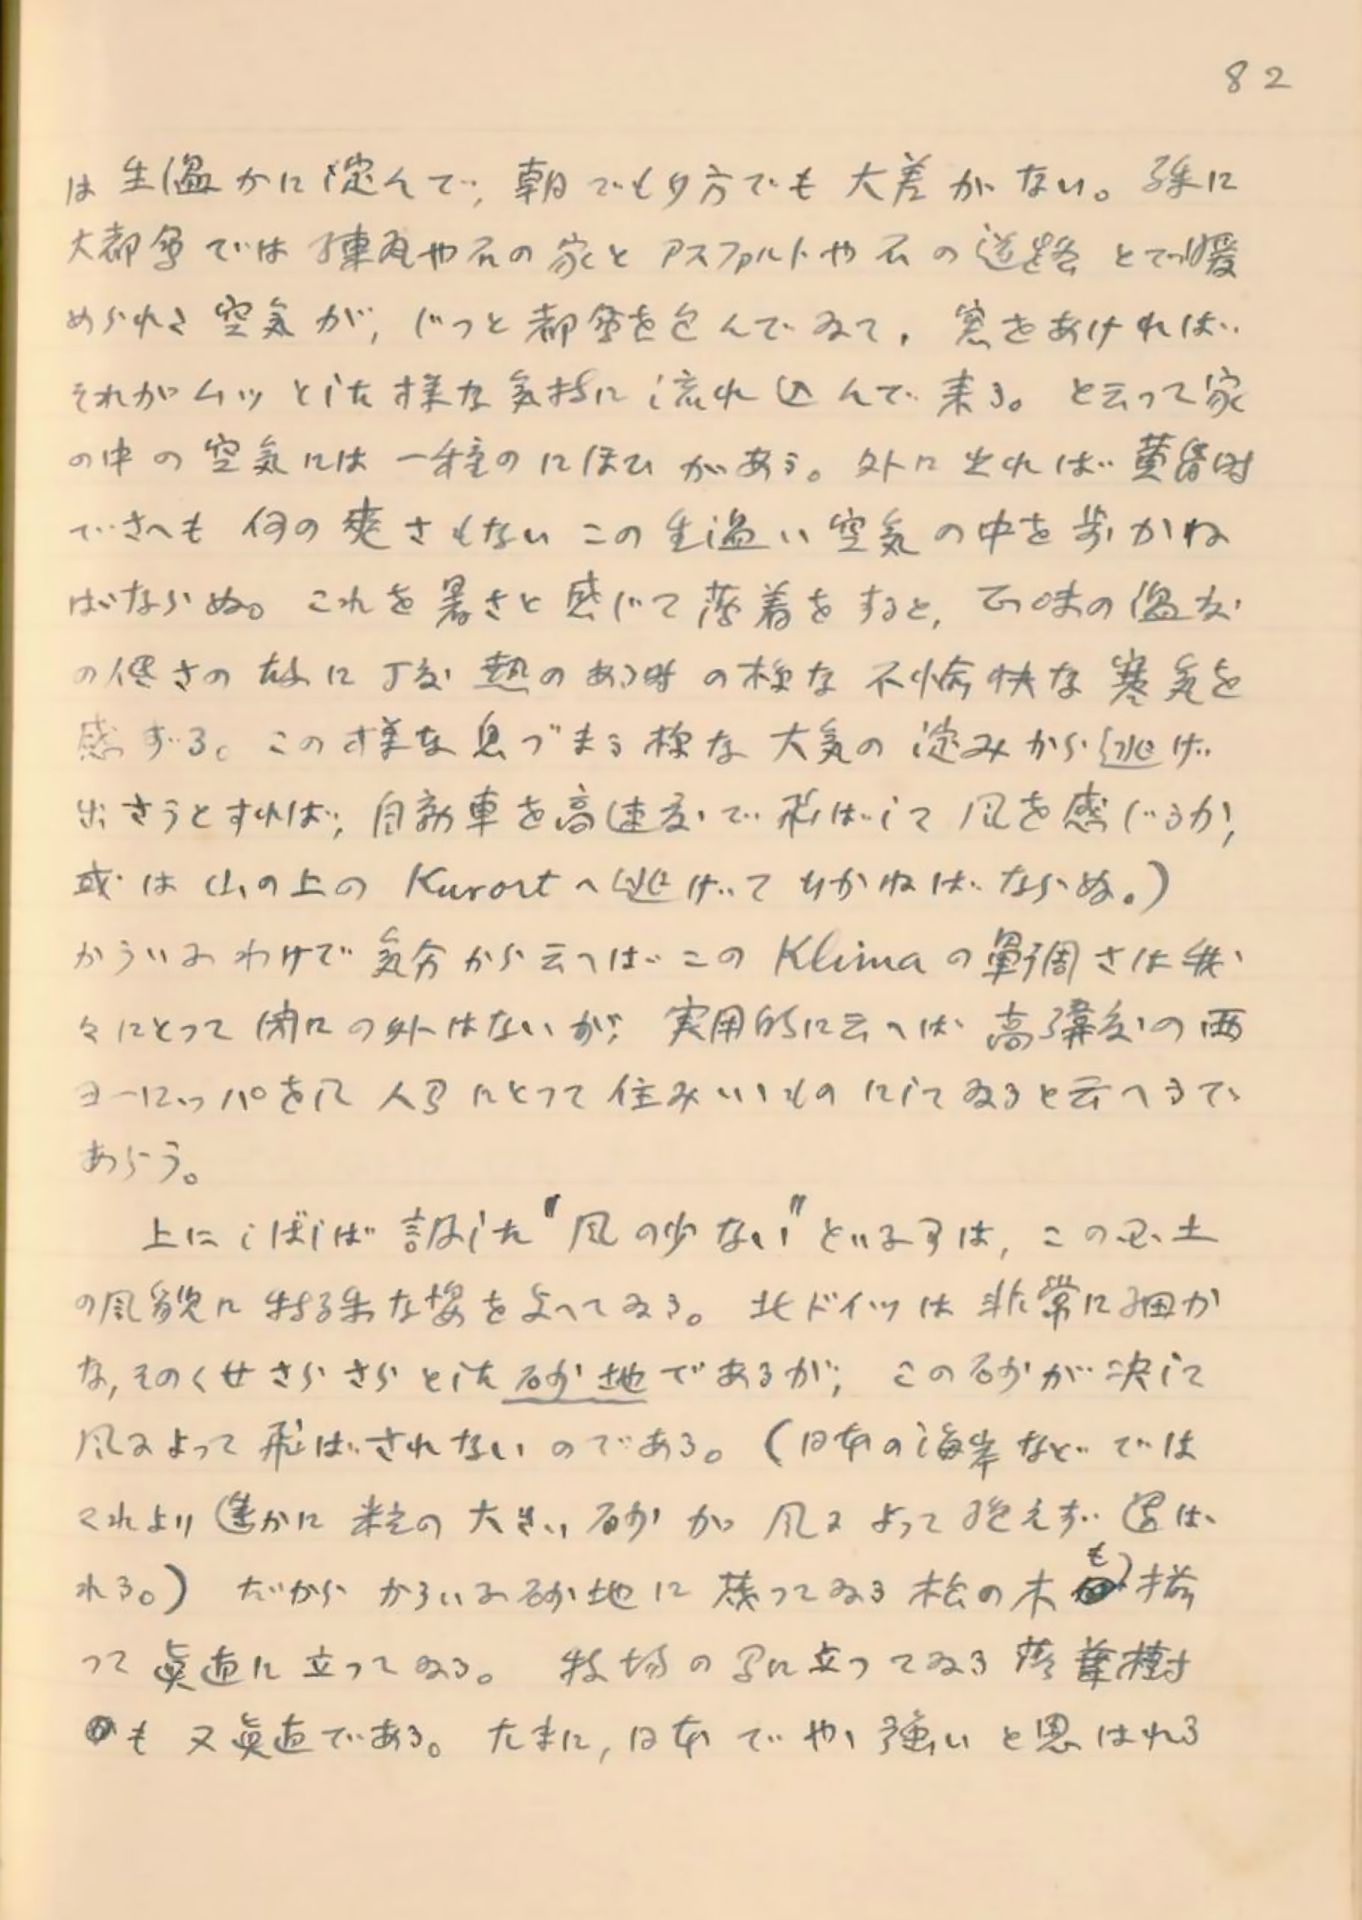 82
は生温かに淀んで、朝でも夕方でも大差がない。殊に
大都会では煉瓦や石の家とアスファルトや石の道路とで暖
められた空気が、じっと都会を包んでゐて、窓をあければ
それがムッとした様な気持に流れ込んで来る。と云って家
の中の空気には一種のにほひがある。外に出れば黄昏時
でさへも何の爽さもないこの生温い空気の中を歩かね
ばならぬ。これを暑さと感じて薄着をすると、正味の温度
の低さの故に丁度熱のある時の様な不愉快な寒気を
感ずる。この様な息づまる様な大気の淀みから逃げ
出さうとすれば、自動車を高速度で飛ばして風を感じるか、
或は山の上のKurortへ逃げて行かねばならぬ。)
かういふわけで気分から云へばこのKlimaの単調さは我
々にとって閉口の外はないが、実用的に云へば高緯度の西
ヨーロッパを人間にとって住みいいものにしてゐると云へるで
あらう。
上にしばしば記した"風の少ない"といふ事は、この風土
の風貌に特殊な姿を与へてゐる。北ドイツは非常に細か
な、そのくせさらさらとした砂地であるが、この砂が決して
風によって飛ばされないのである。(日本の海岸などでは
これより遙かに粒の大きい砂が風によって絶えず運ば
れる。)だからかういふ砂地に茂ってゐる松の木も揃
って眞直に立ってゐる。牧場の間に立ってゐる落葉樹
も又眞直である。たまに、日本でやゝ強いと思はれる